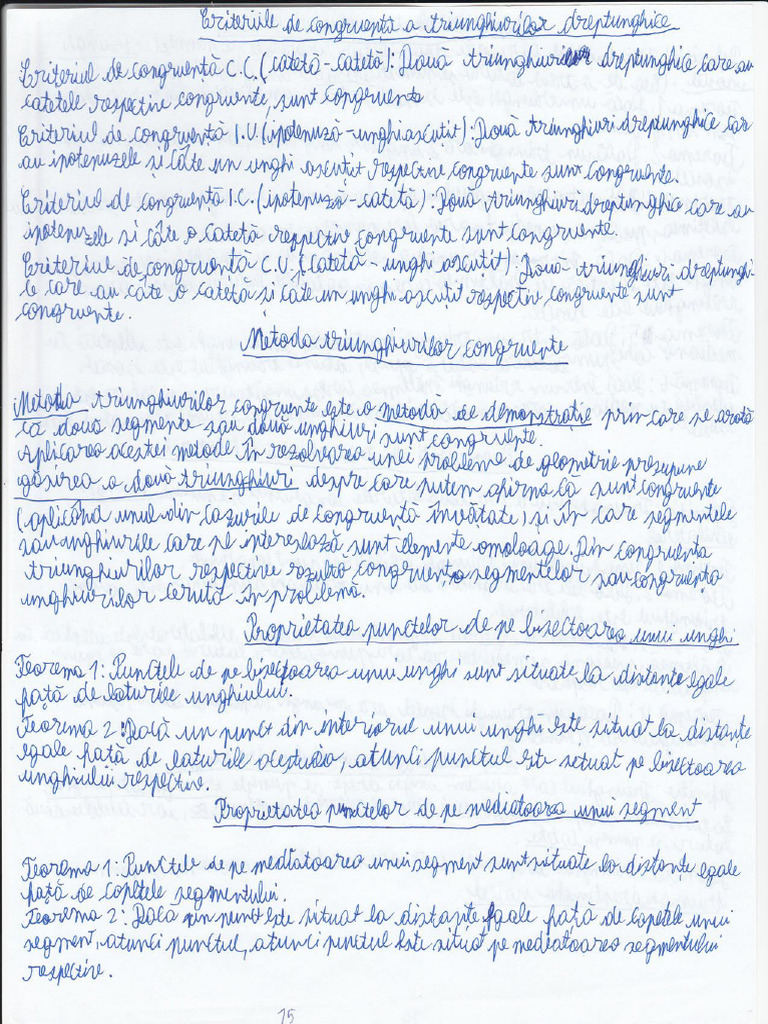 Criteriile de congruență a triunghiurilor dreptunghice
Criteriul de congruență C.C.(catetă-catetă): Două triunghiuri dreptunghice care au
catetele respective congruente, sunt congruente
Criteriul de congruență I.U.(ipotenuză-unghi ascutit): Două triunghiuri dreptunghice car
au ipotenuzele și câte un unghi ascutit respective congruente sunt congruente.
Criteriul de congruență I.C.(ipotenuză-catetă): Două triunghiuri dreptunghice care au
ipotenuzele si câte o catetă respectiv congruente sunt congruente.
Criteriul de congruență C.U.(catetă-unghi ascuțit): Două triunghiuri dreptunghi-
ce care au câte o catetă si câte un unghi ascuțit respectiv congruente sunt
congruente.
Metoda triunghiurilor congruente
Metoda triunghiurilor congruente este o metodă de demonstrație prin care se arată
că două segmente sau două unghiuri sunt congruente.
Aplicarea acestei metode în rezolvarea unei probleme de geometrie presupune
găsirea a două triunghiuri despre care putem afirma că sunt congruente
(aplicând unul din cazurile de congruență învătate) și în care segmentele
sau unghiurile care ne interesează sunt elemente omoloage. Din congruenta
triunghiurilor respective rezultă congruența segmentelor sau congruenta
unghiurilor cerută în problemă.
Proprietatea punctelor de pe bisectoarea unui unghi
Teorema 1: Punctele de pe bisectoarea unui unghi sunt situate la distanțe egale
față de laturile unghiului.
Teorema 2: Dacă un punct din interiorul unui unghi este situat la distanțe
egale față de laturile acestuia, atunci punctul este situat pe bisectoarea
unghiului respective.
Proprietatea punctelor de pe mediatoarea unui segment
Teorema 1: Punctele de pe mediatoarea unui segment sunt situate la distanțe egale
față de capetele segmentului.
Teorema 2: Daca un punct este situat la distanțe egale față de capetele unui
segment, atunci punctul, atunci punctul este situat pe mediatoarea segmentului
respective.
15